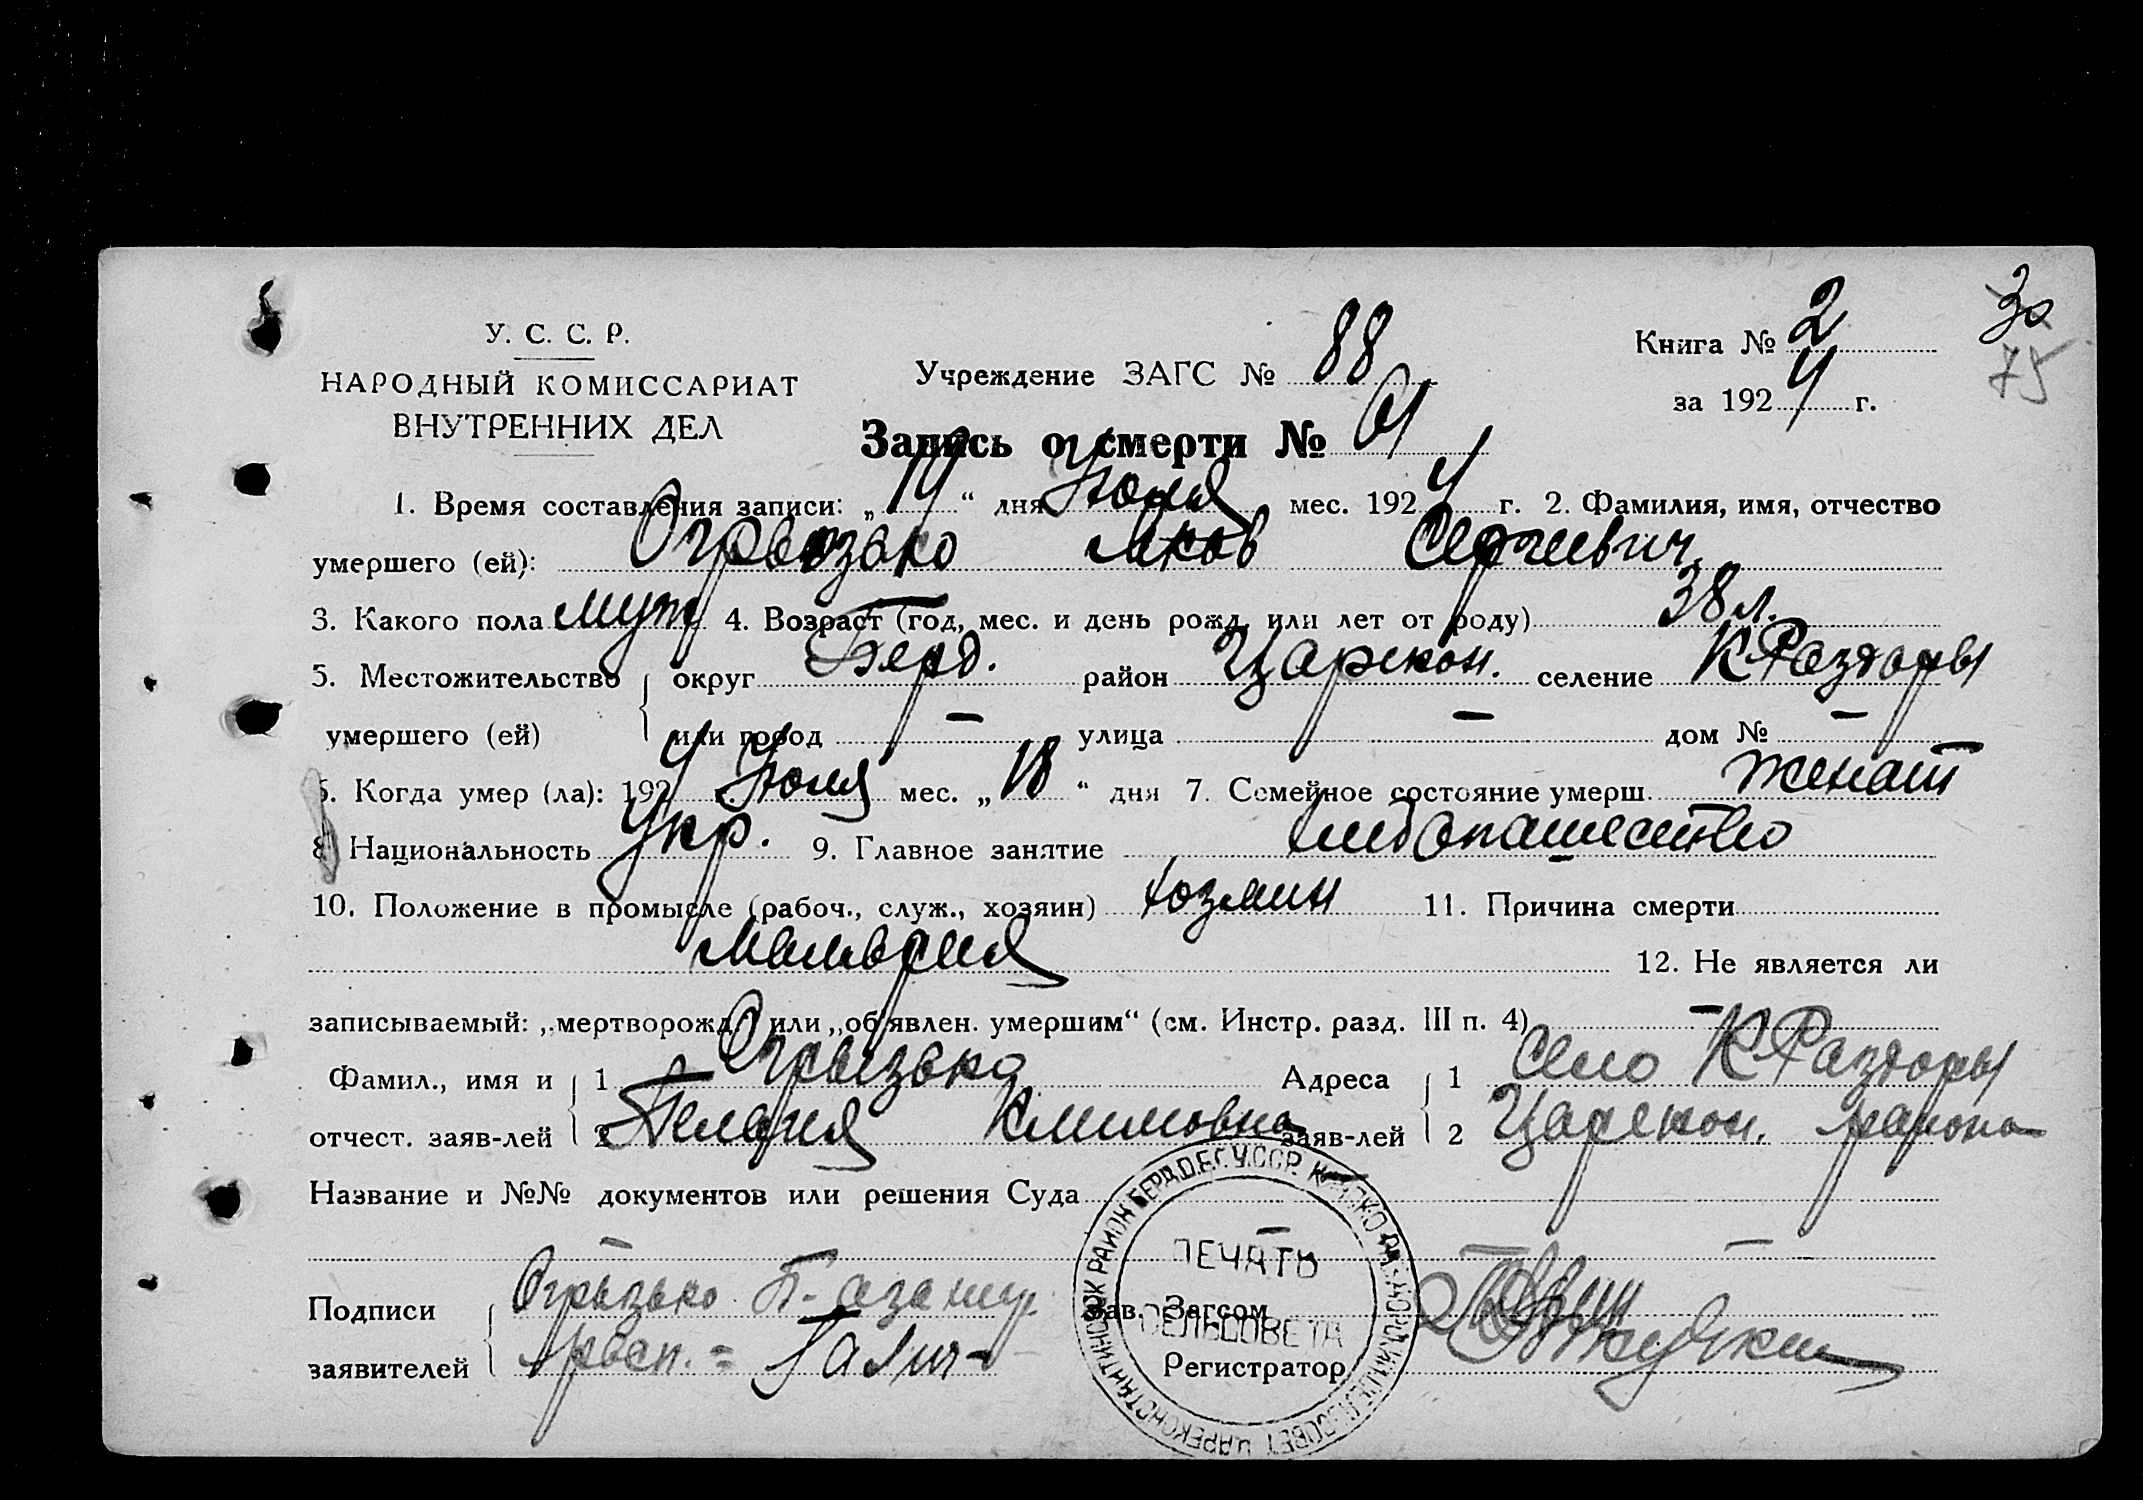 30
75
У. С. С. Р.
НАРОДНЫЙ КОМИССАРИАТ
ВНУТРЕННИХ ДЕЛ
Учреждение ЗАГС № 88
Книга № 2
за 1924 г.
Запись о смерти № 61
1. Время составления записи: „19“ дня Июня мес. 1924 г. 2. Фамилия, имя, отчество
умершего (ей): Огрызько Яков Сергиевич
3. Какого пола муж 4. Возраст (год, мес. и день рожд. или лет от роду) 38 л.
5. Местожительство округ Берд. район Царекон. селение К Раздоры
умершего (ей) или город — улица — дом № —
6. Когда умер (ла): 1924 Июня мес. „18“ дня 7. Семейное состояние умерш. женат
8. Национальность Укр. 9. Главное занятие хлебопашество
10. Положение в промысле (рабоч., служ., хозяин) хозяин 11. Причина смерти
Малярия 12. Не является ли
записываемый: „мертворожд.“ или „об'явлен. умершим“ (см. Инстр. разд. III п. 4) —
Фамил., имя и 1 Огрызько Адреса 1 Село К Раздоры
отчест. заяв-лей 2 Пелагия Климовна заяв-лей 2 Царекон. района
Название и №№ документов или решения Суда —
Подписи Огрызько П. а за негр. Зав. Загсом
заявителей росп. = Галич Регистратор
ПЕЧАТЬ
СЕЛЬСОВЕТА